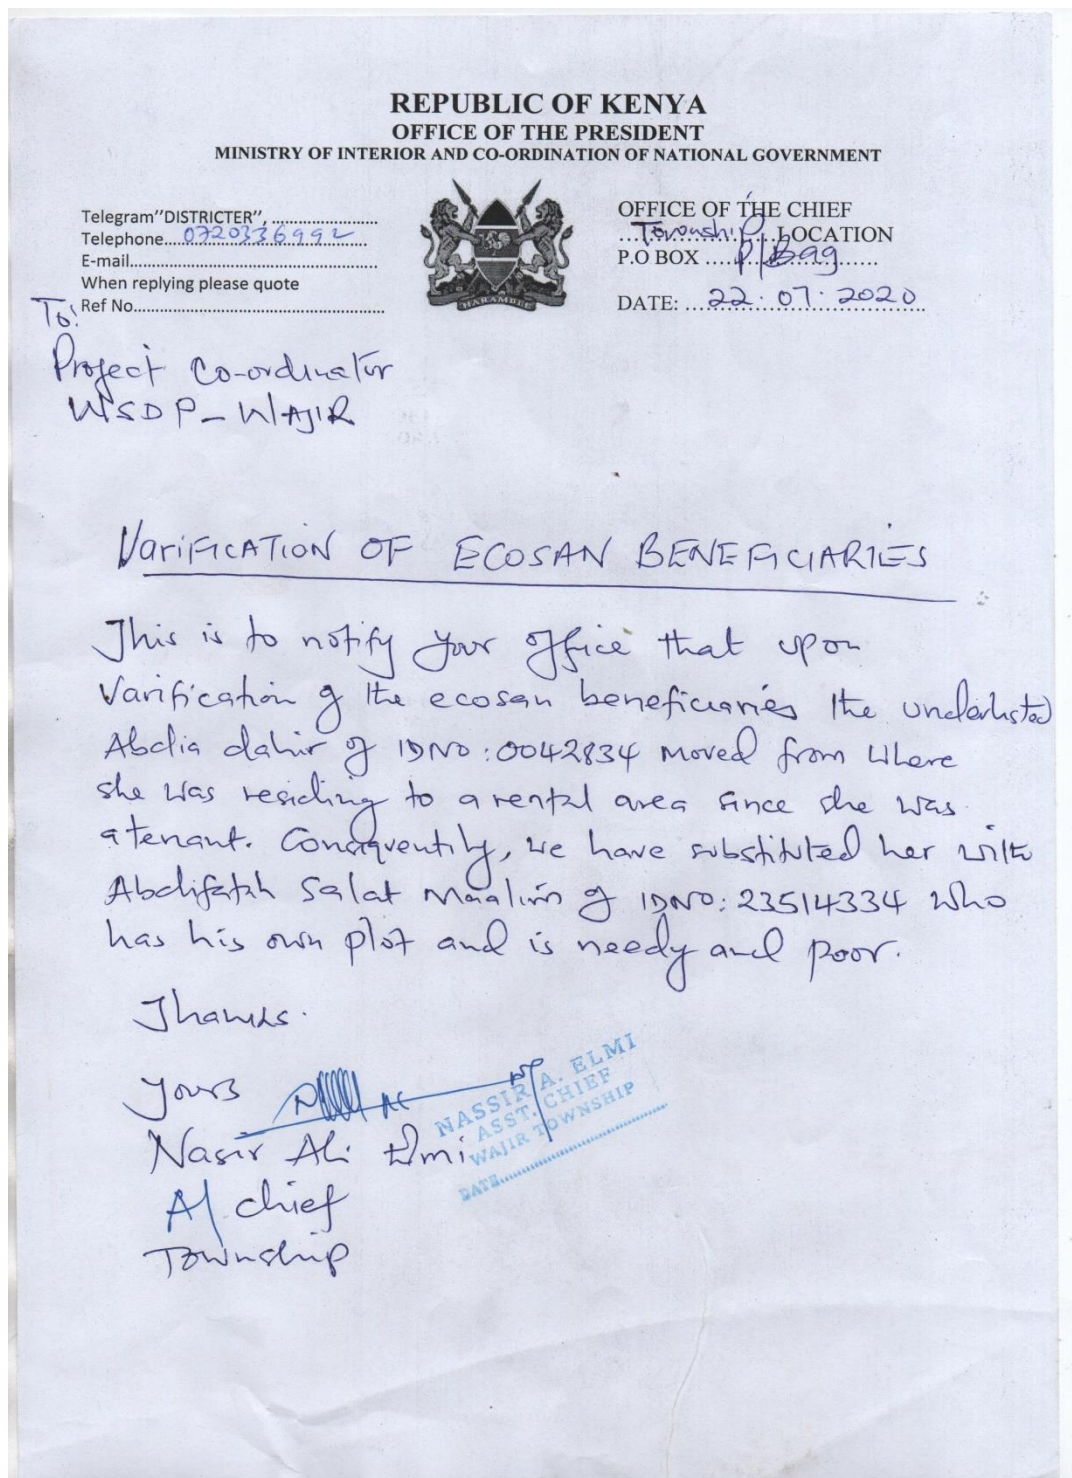 REPUBLIC OF KENYA
OFFICE OF THE PRESIDENT
MINISTRY OF INTERIOR AND CO-ORDINATION OF NATIONAL GOVERNMENT
Telegram"DISTRICTER", ........................
Telephone....0720336992
E-mail...............................................
When replying please quote
Ref No................................................
OFFICE OF THE CHIEF
....Township....LOCATION
P.O BOX ....P/Bag........
DATE: ...22.07.2020
HARAMBEE
To:
Project Co-ordinator
WSDP-WAJIR
VariFICATION OF ECOSAN BENEFICIARIES
This is to notify your office that upon
Varification of the ecosan beneficiaries the underlisted
Abdia dahir of IDNO:0042834 moved from where
she was residing to a rental area since she was
a tenant. Consequently, we have substituted her with
Abdifatah Salat Maalim of IDNO:23514334 who
has his own plot and is needy and poor.
Thanks.
Yours
Nasir Ali Elmi
A/chief
Township
NASSIR A. ELMI
ASST. CHIEF
WAJIR TOWNSHIP
DATE....................